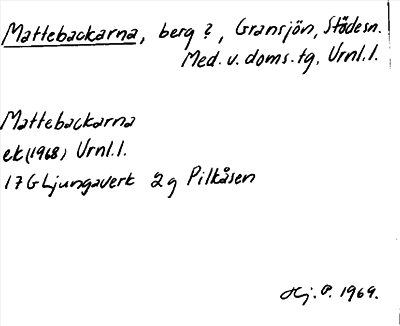 Mattebackarna, berg?, Gransjön, Stödesn.
Med. v. doms. tg. Urnl. l.
Mattebackarna
ek (1968) Urnl. l.
17G Ljungaverk 2g Pilkåsen
Hj. P. 1969.